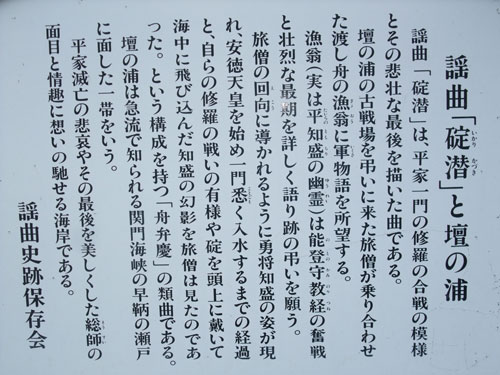 謡曲「碇潜」と壇の浦
謡曲「碇潜」は、平家一門の修羅の合戦の模様
とその悲壮な最後を描いた曲である。
壇の浦の古戦場を弔いに来た旅僧が乗り合わせ
た渡し舟の漁翁に軍物語を所望する。
漁翁(実は平知盛の幽霊)は能登守教経の奮戦
と壮烈な最期を詳しく語り跡の弔いを願う。
旅僧の回向に導かれるように勇将知盛の姿が現
れ、安徳天皇を始め一門悉く入水するまでの経過
と、自らの修羅の戦いの有様や碇を頭上に戴いて
海中に飛び込んだ知盛の幻影を旅僧は見たのであ
った。という構成を持つ「舟弁慶」の類曲である。
壇の浦は急流で知られる関門海峡の早鞆の瀬戸
に面した一帯をいう。
平家滅亡の悲哀やその最後を美しくした総帥の
面目と情趣に想いの馳せる海岸である。
謡曲史跡保存会